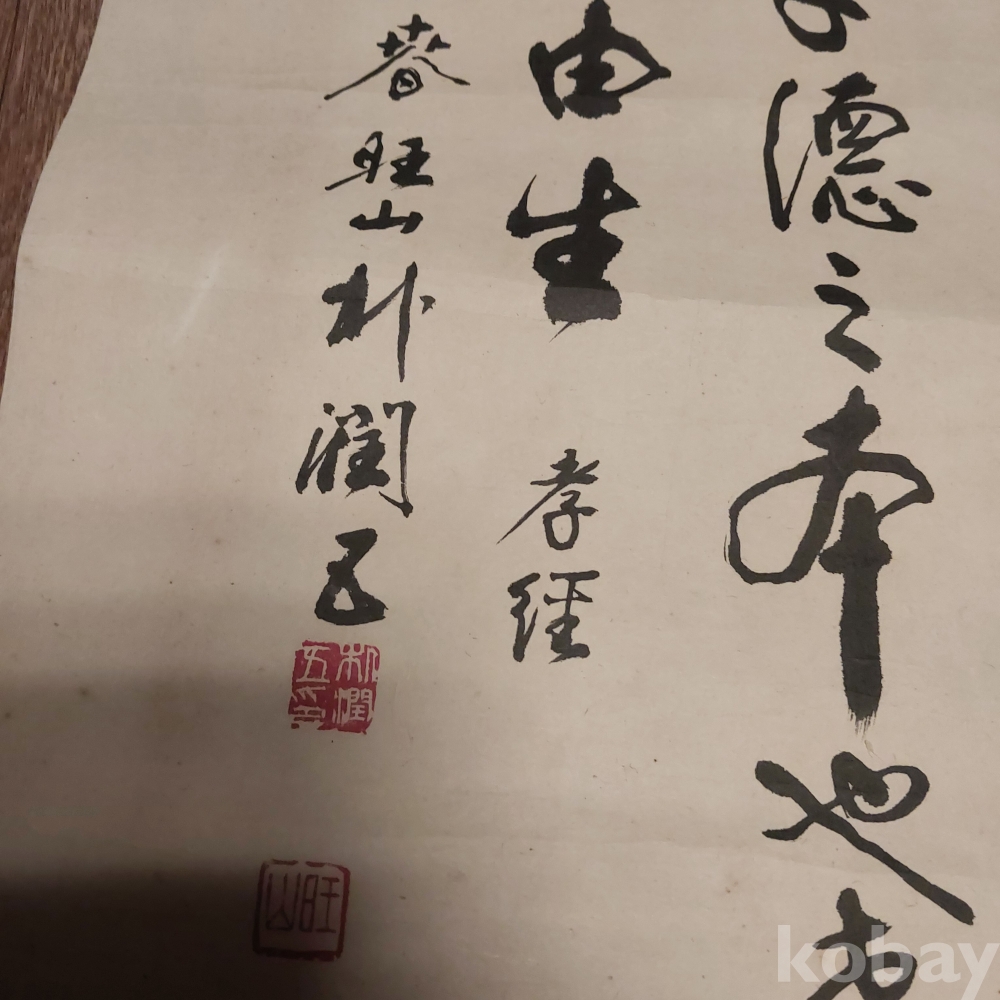 德之本也
由生 孝經
春旺山朴潤五
朴潤五印
旺山
kobay